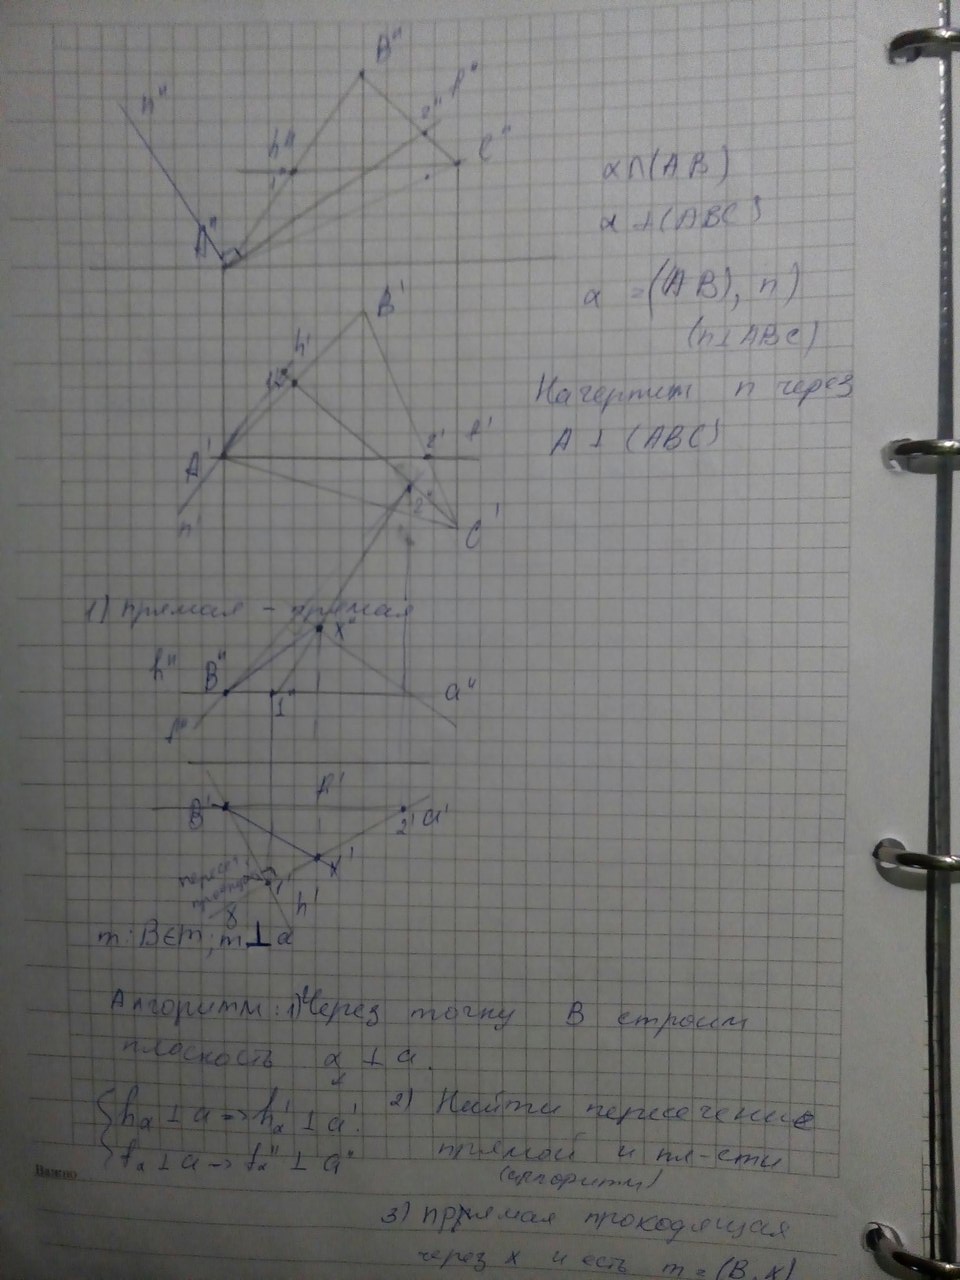 B"
n"
h"
2"
f"
C"
1"
A"
α∩(AB)
α⊥(ABC)
α =(AB), n)
(n⊥ABC)
Начертим n через
A ⊥ (ABC)
B'
h'
1'
A'
2'
f'
n'
C'
2"
1) прямая - прямая
X"
h"
B"
1"
a"
f"
B'
f'
2'
a'
X'
1'
h'
γ
m: B∈m; m⊥a
Алгоритм: 1) Через точку B строим
плоскость α ⊥ a.
hα ⊥ a → h'α ⊥ a'.
fα ⊥ a → f"α ⊥ a"
2) Найти пересечение
прямой и пл-сти
(алгоритм)
Важно
3) прямая проходящая
через x и есть m = (B, X)